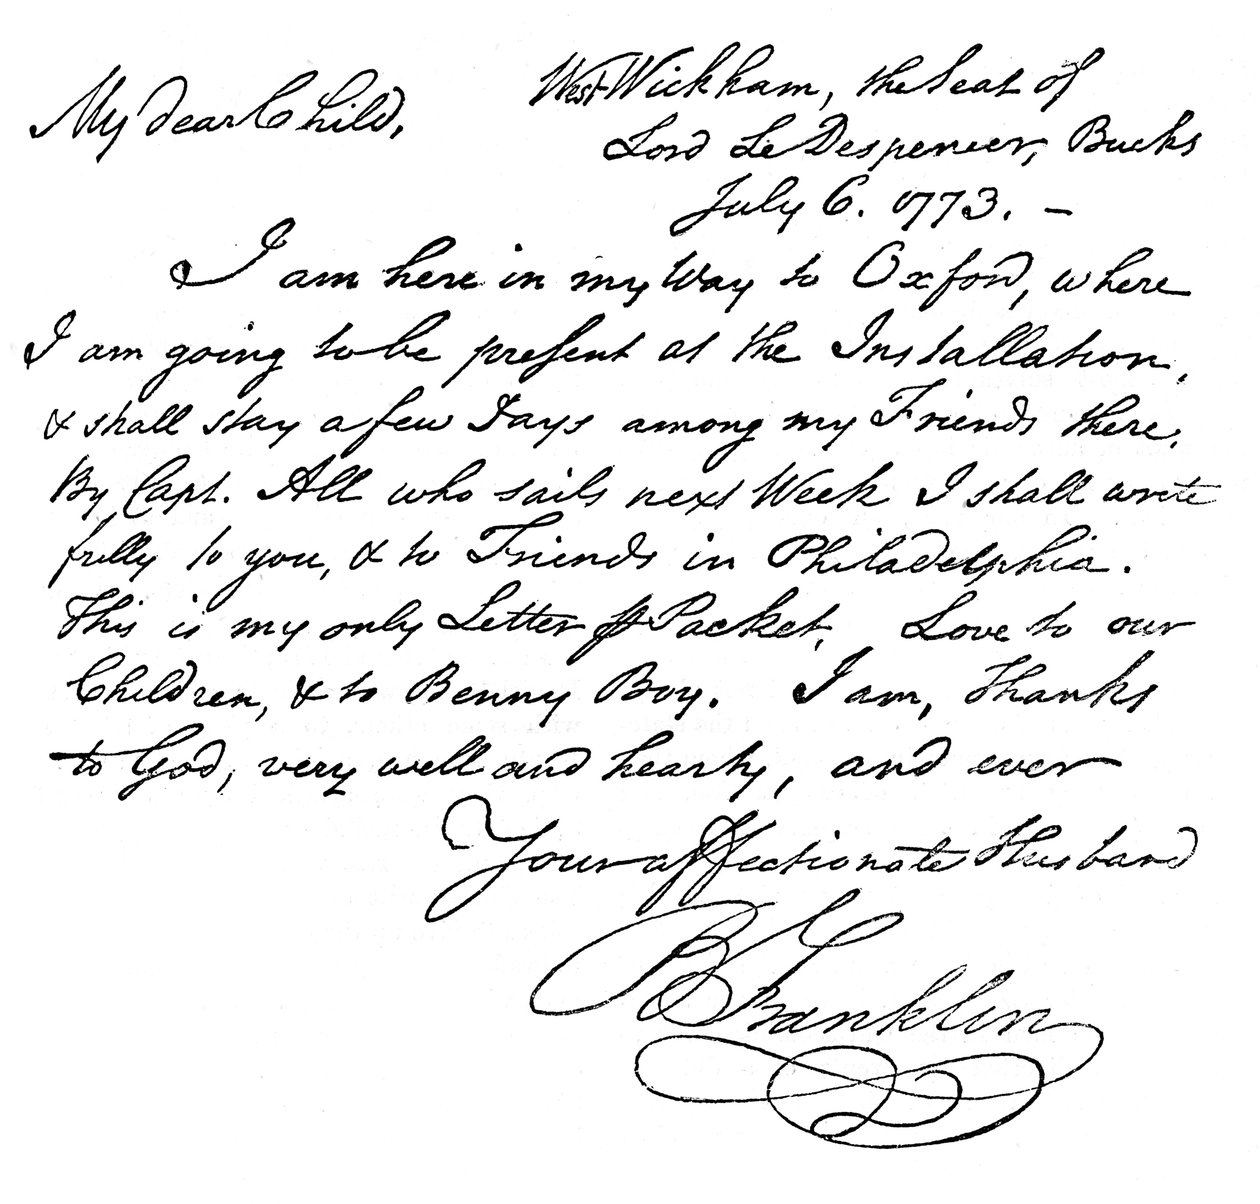 My dear Child,
West Wickham, the Seat of
Lord Le Despencer, Bucks
July 6. 1773. —
I am here in my Way to Oxford, where
I am going to be present at the Installation,
& shall stay a few Days among my Friends there.
By Capt. All who sails next Week I shall write
fully to you, & to Friends in Philadelphia.
This is my only Letter ⅌ Packet. Love to our
Children, & to Benny Boy. I am, Thanks
to God, very well and hearty, and ever
Your affectionate Husband
B Franklin